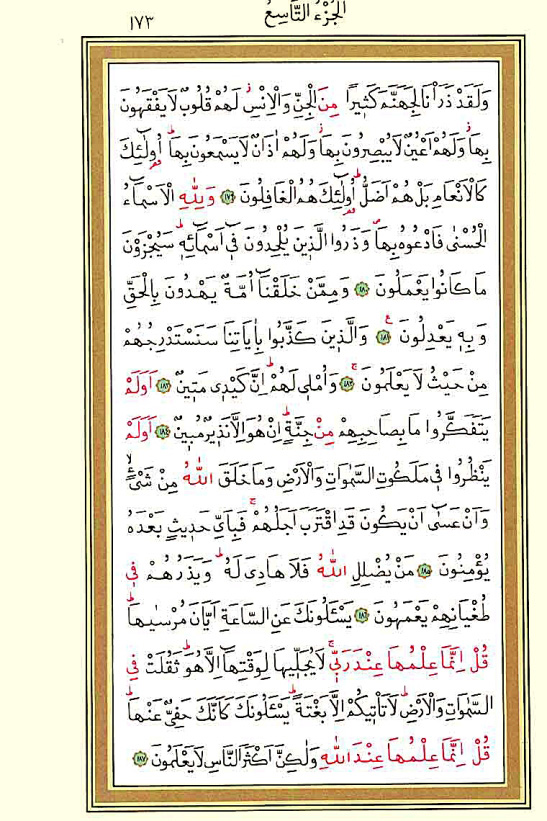 الْجُزْءُ التَّاسِعُ
١٧٣
وَلَقَدْ ذَرَأْنَا لِجَهَنَّمَ كَثِيرًا مِنَ الْجِنِّ وَالْاِنْسِ لَهُمْ قُلُوبٌ لَا يَفْقَهُونَ
بِهَا وَلَهُمْ اَعْيُنٌ لَا يُبْصِرُونَ بِهَا وَلَهُمْ اٰذَانٌ لَا يَسْمَعُونَ بِهَا اُو۬لٰٓئِكَ
كَالْاَنْعَامِ بَلْ هُمْ اَضَلُّ اُو۬لٰٓئِكَ هُمُ الْغَافِلُونَ ١٧٩ وَلِلّٰهِ الْاَسْمَٓاءُ
الْحُسْنٰى فَادْعُوهُ بِهَا وَذَرُوا الَّذِينَ يُلْحِدُونَ فِٓى اَسْمَٓائِهِ سَيُجْزَوْنَ
مَا كَانُوا يَعْمَلُونَ ١٨٠ وَمِمَّنْ خَلَقْنَٓا اُمَّةٌ يَهْدُونَ بِالْحَقِّ
وَبِهِ يَعْدِلُونَ ١٨١ وَالَّذِينَ كَذَّبُوا بِاٰيَاتِنَا سَنَسْتَدْرِجُهُمْ
مِنْ حَيْثُ لَا يَعْلَمُونَ ١٨٢ وَاُمْلِى لَهُمْ اِنَّ كَيْدِى مَتِينٌ ١٨٣ اَوَلَمْ
يَتَفَكَّرُوا مَا بِصَاحِبِهِمْ مِنْ جِنَّةٍ اِنْ هُوَ اِلَّا نَذِيرٌ مُبِينٌ ١٨٤ اَوَلَمْ
يَنْظُرُوا فِى مَلَكُوتِ السَّمٰوَاتِ وَالْاَرْضِ وَمَا خَلَقَ اللّٰهُ مِنْ شَىْءٍ
وَاَنْ عَسٰٓى اَنْ يَكُونَ قَدِ اقْتَرَبَ اَجَلُهُمْ فَبِاَىِّ حَدِيثٍ بَعْدَهُ
يُؤْمِنُونَ ١٨٥ مَنْ يُضْلِلِ اللّٰهُ فَلَا هَادِىَ لَهُ وَيَذَرُهُمْ فِى
طُغْيَانِهِمْ يَعْمَهُونَ ١٨٦ يَسْـَٔلُونَكَ عَنِ السَّاعَةِ اَيَّانَ مُرْسٰيهَا
قُلْ اِنَّمَا عِلْمُهَا عِنْدَ رَبِّى لَا يُجَلِّيهَا لِوَقْتِهَٓا اِلَّا هُوَ ثَقُلَتْ فِى
السَّمٰوَاتِ وَالْاَرْضِ لَا تَأْتِيكُمْ اِلَّا بَغْتَةً يَسْـَٔلُونَكَ كَاَنَّكَ حَفِىٌّ عَنْهَا
قُلْ اِنَّمَا عِلْمُهَا عِنْدَ اللّٰهِ وَلٰكِنَّ اَكْثَرَ النَّاسِ لَا يَعْلَمُونَ ١٨٧